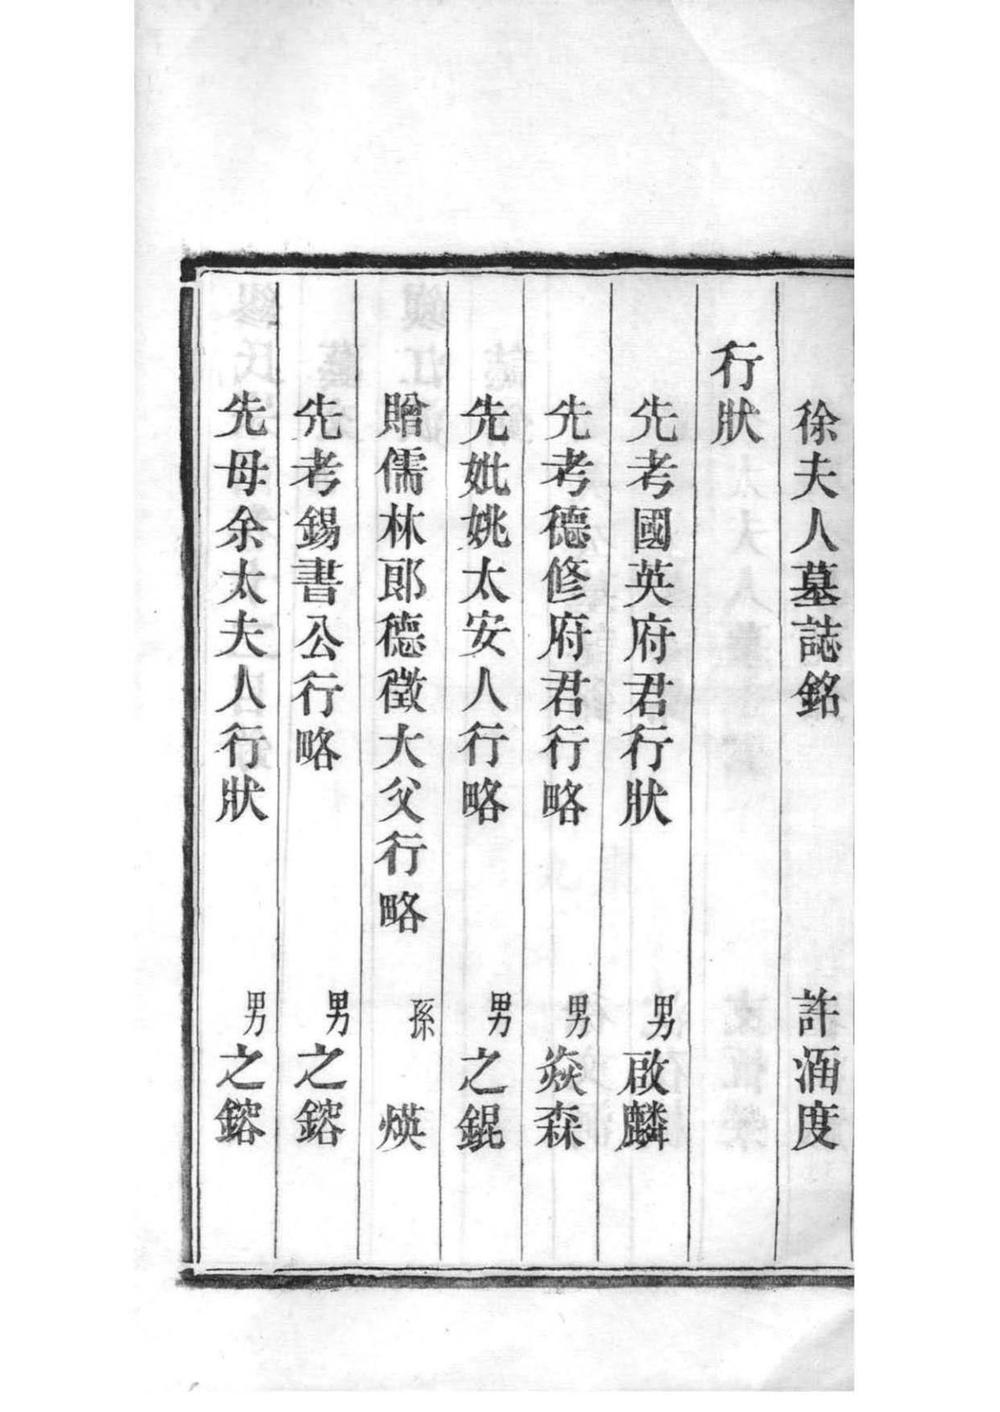 徐夫人墓誌銘　許涵度
行狀
先考國英府君行狀　男啟麟
先考德修府君行略　男焱森
先妣姚太安人行略　男之錕
贈儒林郎德徵大父行略　孫煐
先考錫書公行略　男之鎔
先母余太夫人行狀　男之鎔